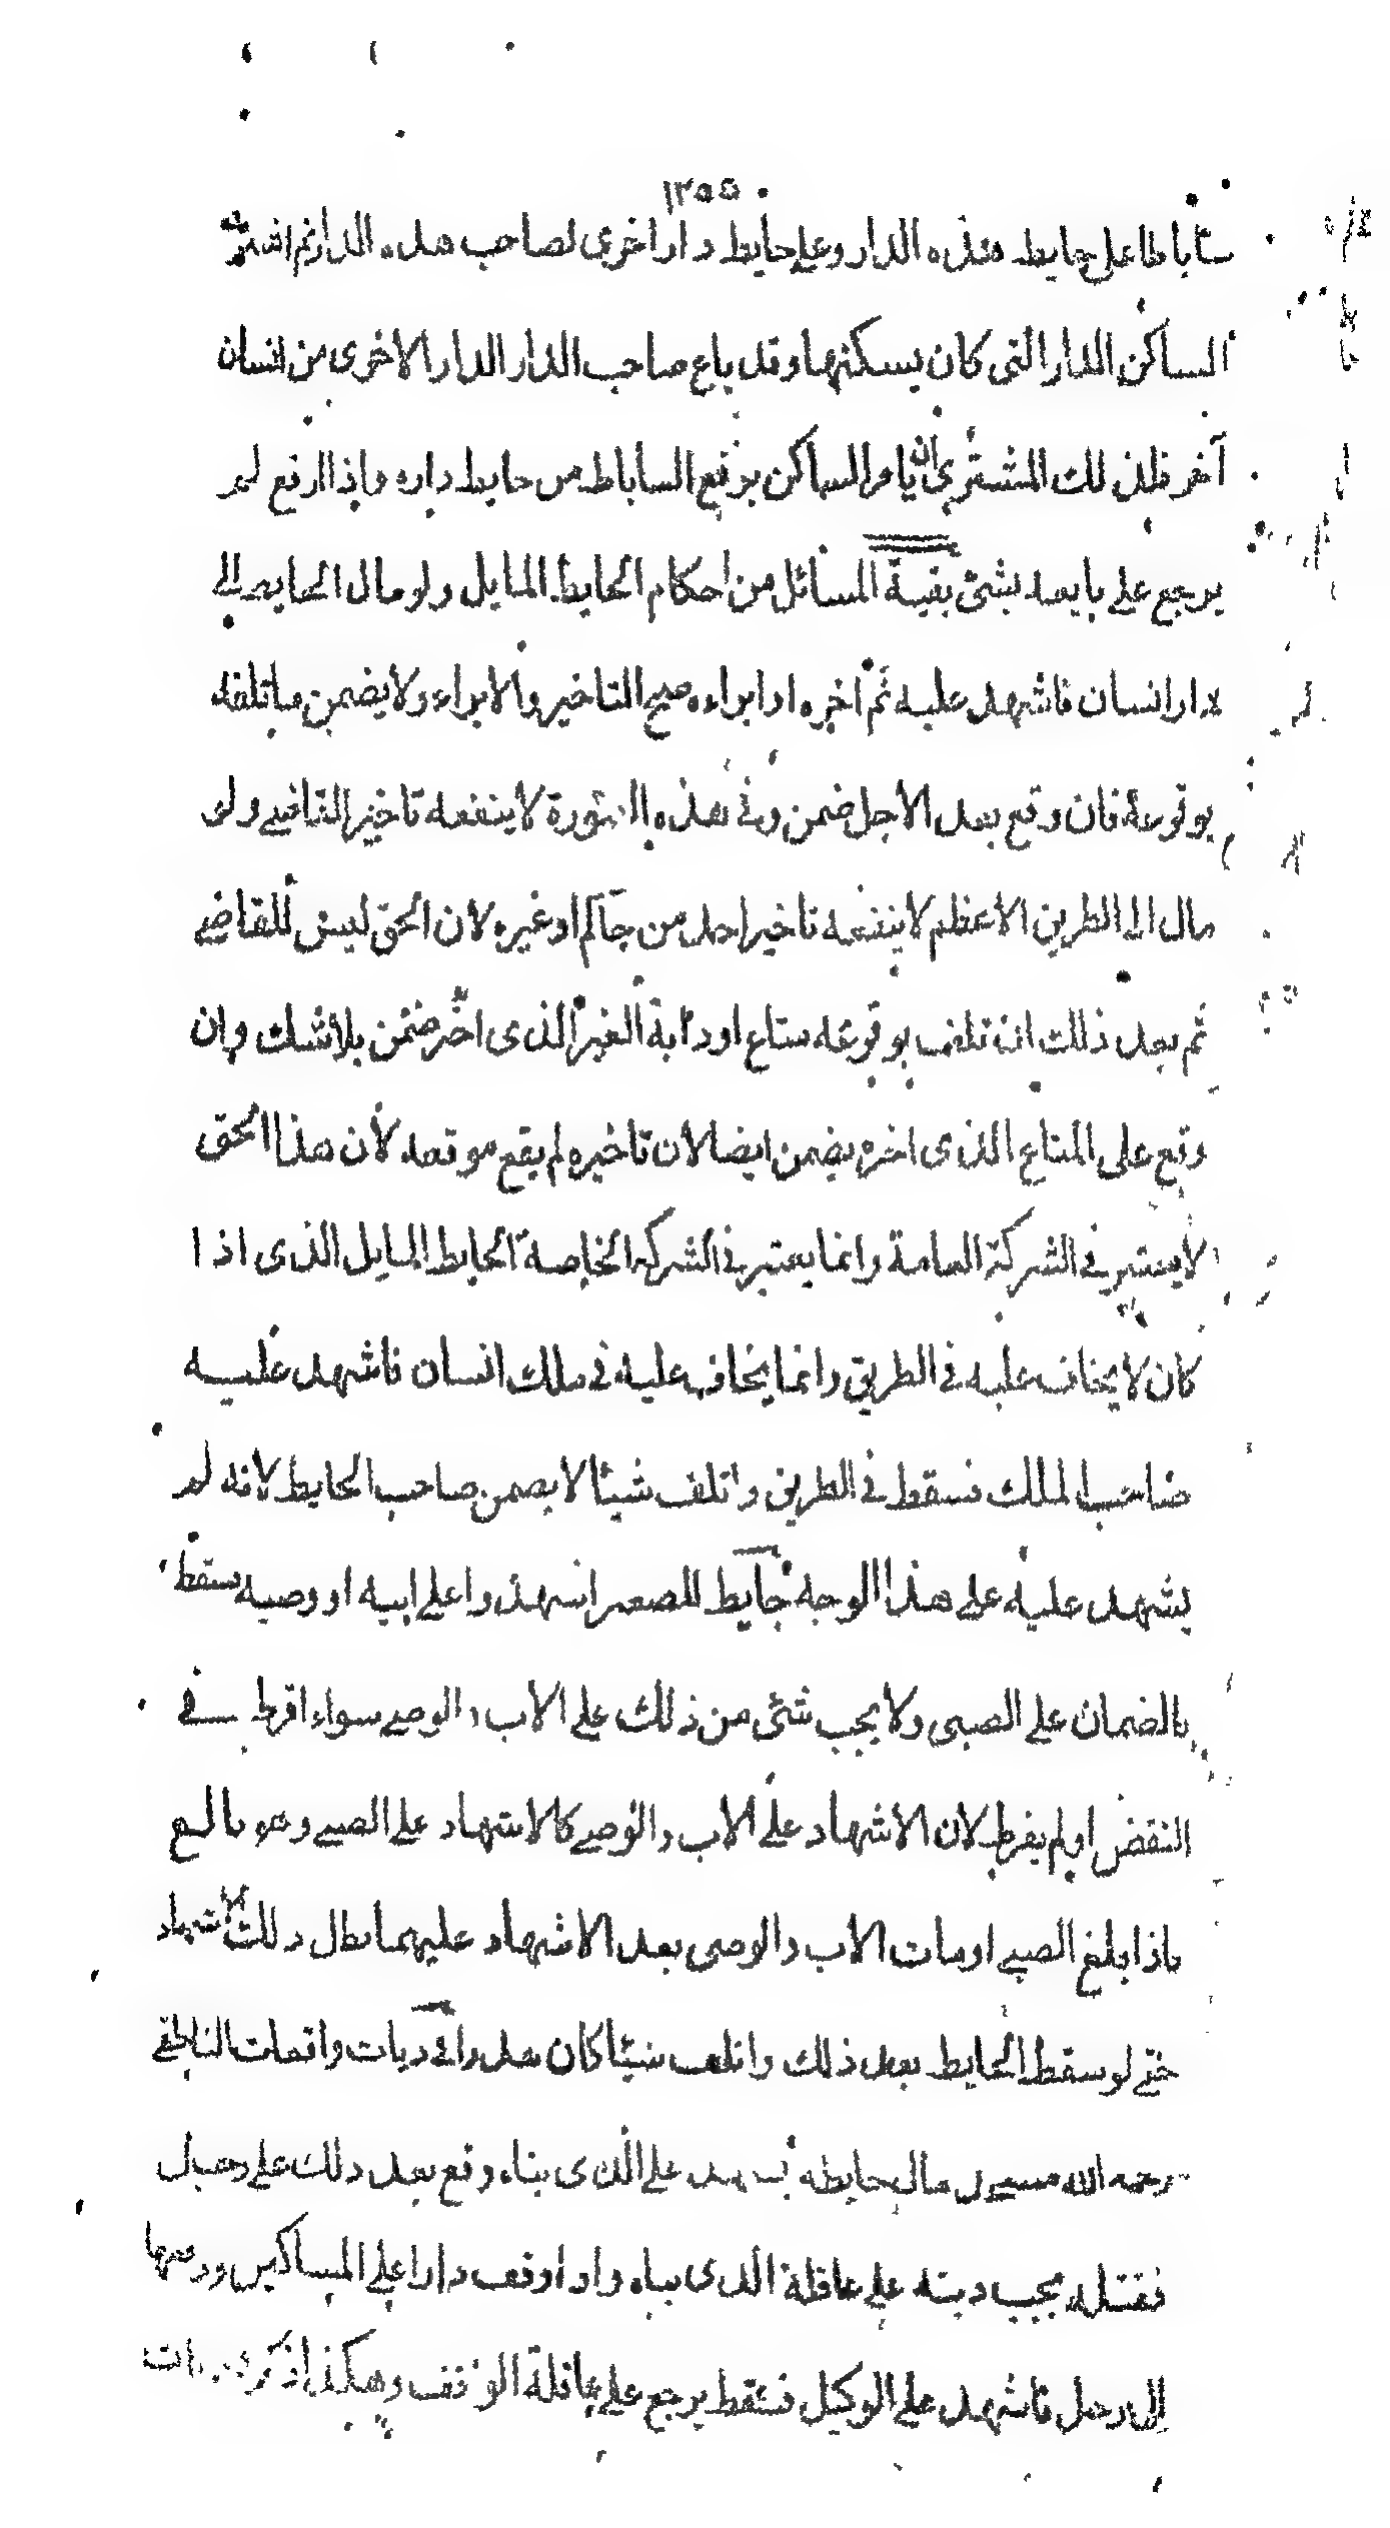 ١٢٥٥
ساباطا على حايط هذه الدار وعلى حايط دار اخرى لصاحب هذه الدار ثم اشترى
الساكن الدار التى كان يسكنها وقد باع صاحب الدار الدار الاخرى من انسان
آخر فلذلك المشترى ان يامر الساكن برفع الساباط من حايط داره واذا ارفع لم
يرجع على بايعه بشئ بقية المسائل من احكام الحايط المايل ولو مال الحايط الى
دار انسان فاشهد عليه ثم اخره او ابراءه صح التاخير والابراء ولا يضمن ما تلف
بوقوعه فان وقع بعد الاجل ضمن وفى هذه الصورة لا ينفعه تاخير القاضى ولو
مال الى الطريق الاعظم لا ينفعه تاخير احد من حاكم او غيره لان الحق ليس للقاضى
ثم بعد ذلك ان تلف بوقوعه متاع او دابة الغير الذى اخر ضمن بلا شك وان
وقع على المتاع الذى اخره يضمن ايضا لان تاخيره لم يقع موقعه لان هذا الحق
لا يعتبر فى الشركة العامة وانما يعتبر فى الشركة الخاصة الحايط المايل الذى اذا
كان لا يخاف عليه فى الطريق وانما يخاف عليه فى ملك انسان فاشهد عليه
صاحب الملك فسقط فى الطريق واتلف شيئا لا يضمن صاحب الحايط لانه لم
يشهد عليه على هذا الوجه حايط للصغير اشهدوا على ابيه او وصيه سقط
فالضمان على الصبى ولا يجب شئ من ذلك على الاب والوصى سواء افرط فى
النقض او لم يفرط لان الاشهاد على الاب والوصى كالاشهاد على الصبى وهو بالغ
فاذا بلغ الصبى او مات الاب والوصى بعد الاشهاد عليهما بطل ذلك الاشهاد
حتى لو سقط الحايط بعد ذلك واتلف شيئا كان هدرا فى ديات واقعات الناطفى
رحمه الله مسجد مال حايطه فاشهد على الذى بناه وقع بعد ذلك على رجل
فقتله يجب ديته على عاقلة الذى بناه واذا وقف دارا على المساكين ودفعها
الى رجل فاشهد على الوكيل فسقط يرجع على عاقلة الواقف وهكذا ذكر